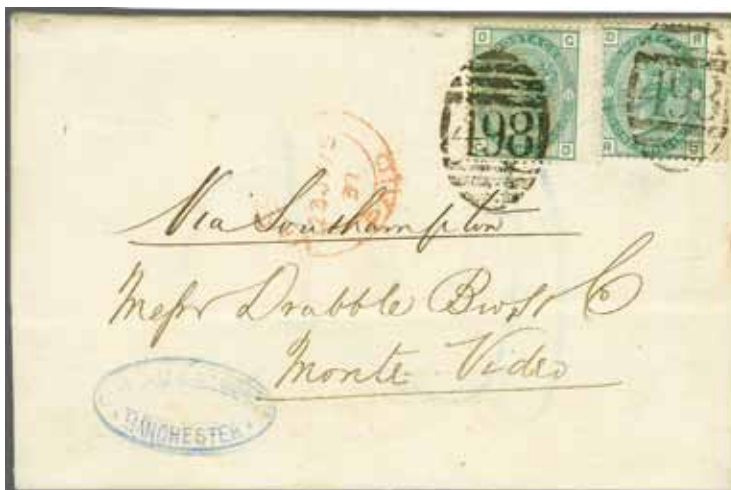 D G D R
498
G D R S
PAID
Via Southampton
Messr Drabble Bros & Co
Monte Video
MANCHESTER